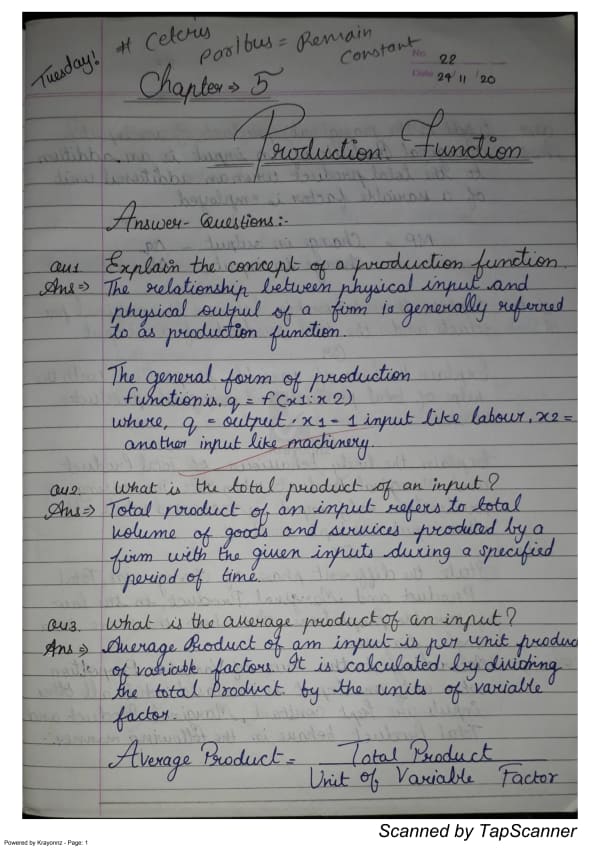 Tuesday!
# Celeris
Paribus = Remain
Constant
No. 22
Date 24/11/20
Chapter => 5
Production Function
Answer-Questions:-
Qu1 Explain the concept of a production function.
Ans => The relationship between physical input and
physical output of a firm is generally referred
to as production function.
The general form of production
function is, q = f(x1: x2)
where, q = output · x1 = 1 input like labour, x2 =
another input like machinery.
Qu2. What is the total product of an input?
Ans => Total product of an input refers to total
volume of goods and services produced by a
firm with the given inputs during a specified
period of time.
Qu3. What is the average product of an input?
Ans => Average Product of am input is per unit produc
of variable factors. It is calculated by dividing
the total Product by the units of variable
factor.
Average Product = Total Product
Unit of Variable Factor
Scanned by TapScanner
Powered by Krayonnz - Page: 1